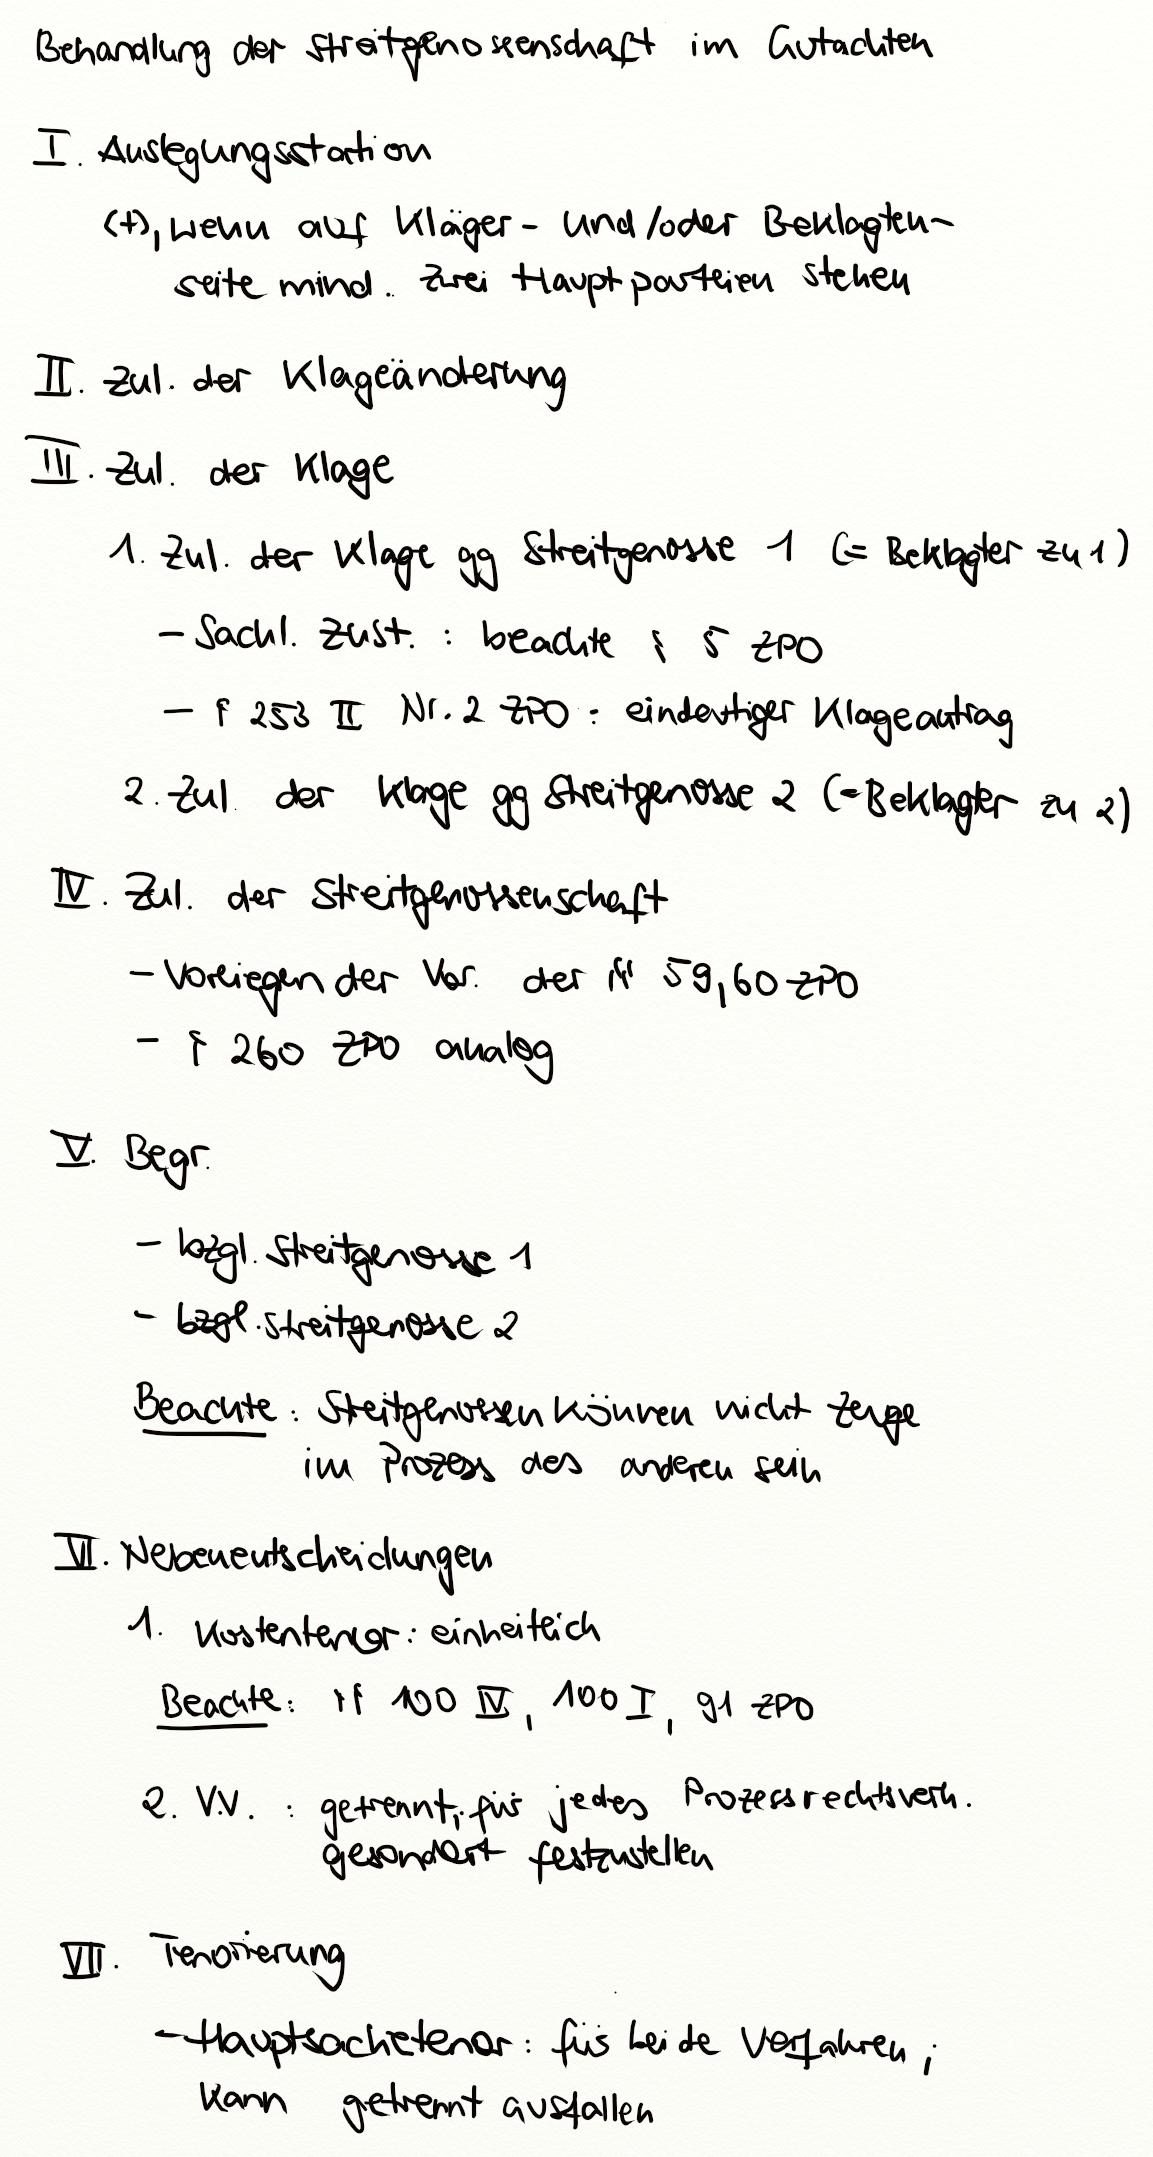 Behandlung der Streitgenossenschaft im Gutachten
I. Auslegungsstation
(+), wenn auf Kläger- und/oder Beklagten-
seite mind. zwei Hauptparteien stehen
II. Zul. der Klageänderung
III. Zul. der Klage
1. Zul. der Klage gg Streitgenosse 1 (= Beklagter zu 1)
- Sachl. Zust. : beachte § 5 ZPO
- § 253 II Nr. 2 ZPO : eindeutiger Klageantrag
2. Zul. der Klage gg Streitgenosse 2 (= Beklagter zu 2)
IV. Zul. der Streitgenossenschaft
- Vorliegen der Vor. der §§ 59, 60 ZPO
- § 260 ZPO analog
V. Begr.
- bzgl. Streitgenosse 1
- bzgl. Streitgenosse 2
Beachte : Steitgenossen können nicht Zeuge
im Prozess des anderen sein
VI. Nebenentscheidungen
1. Kostentenor : einheitlich
Beachte : §§ 100 IV, 100 I, 91 ZPO
2. V.V. : getrennt, für jedes Prozessrechtsverh.
gesondert festzustellen
VII. Tenorierung
- Hauptsachetenor : für beide Verfahren ;
kann getrennt ausfallen